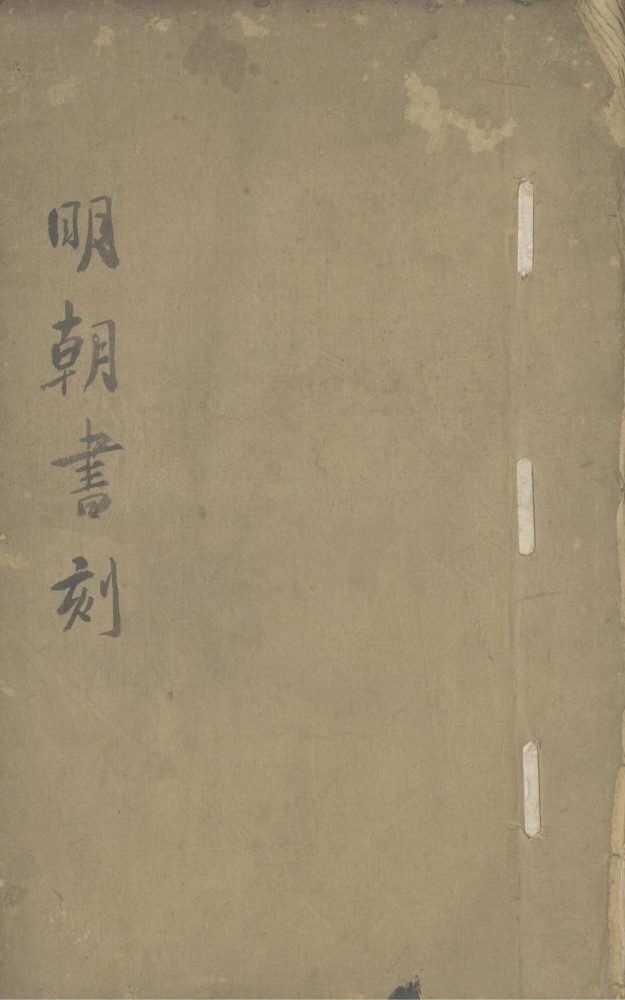 明朝書刻